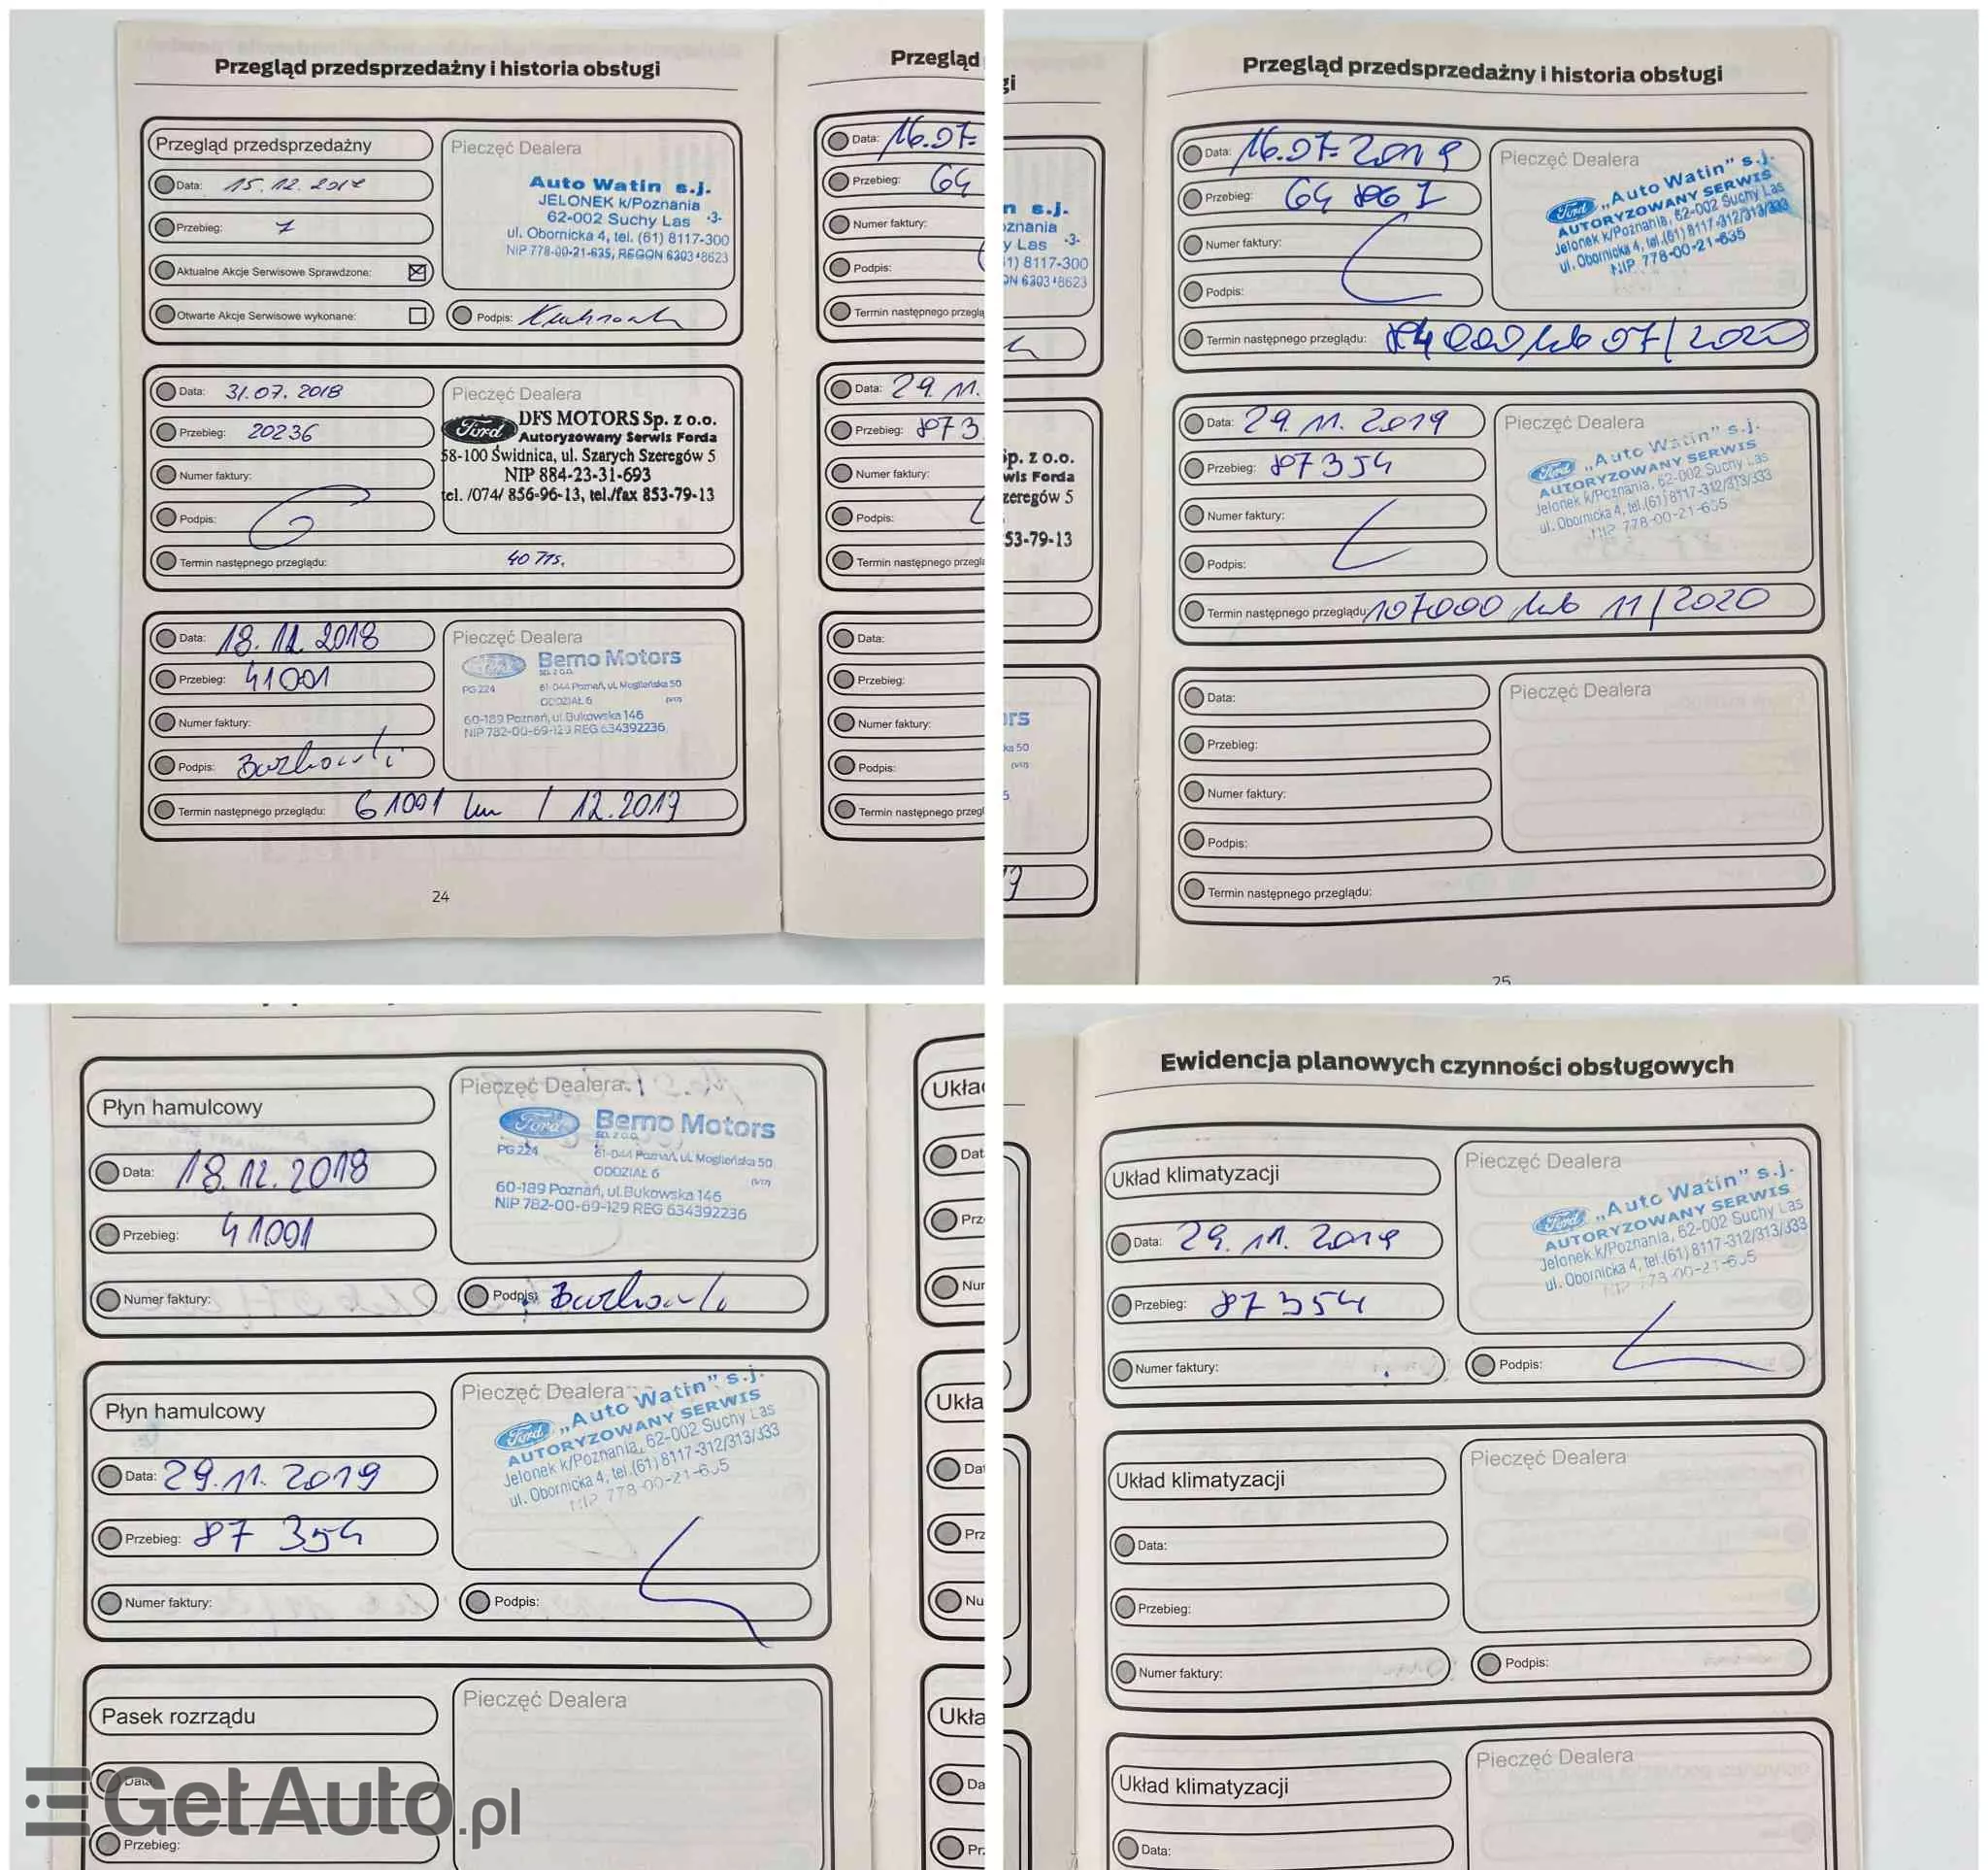 Przegląd przedsprzedażny i historia obsługi
Przegląd przedsprzedażny
Pieczęć Dealera
Data: 15.12.2017
Przebieg: 7
Aktualne Akcje Serwisowe Sprawdzone:
Otwarte Akcje Serwisowe wykonane:
Auto Watin s.j.
JELONEK k/Poznania
62-002 Suchy Las -3-
ul. Obornicka 4, tel. (61) 8117-300
NIP 778-00-21-635, REGON
Podpis:
Data: 31.07.2018
Przebieg: 20236
Numer faktury:
Podpis:
Pieczęć Dealera
Ford
DFS MOTORS Sp. z o.o.
Autoryzowany Serwis Forda
58-100 Świdnica, ul. Szarych Szeregów 5
NIP 884-23-31-693
tel. /074/ 856-96-13, tel./fax 853-79-13
Termin następnego przeglądu: 40
Data: 18.12.2018
Przebieg: 41001
Numer faktury:
Podpis:
Pieczęć Dealera
Bemo Motors
SP. Z O.O.
PG 224
61-044 Poznań, ul. Mogileńska 50
ODDZIAŁ 6
60-189 Poznań, ul. Bukowska 146
NIP 782-00-69-129 REG 634392236
Termin następnego przeglądu: 61001 km / 12.2019
24
Przegląd
Data: 16.07-
Przebieg: 64
Numer faktury:
Podpis:
Termin następnego
Data: 29.11.
Przebieg: 873
Numer faktury:
Podpis:
Termin następnego
Data:
Przebieg:
Numer faktury:
Podpis:
Termin następnego
gi
n s.j.
znania
y Las -3-
1) 8117-300
Sp. z o.o.
wis Forda
zeregów 5
53-79-13
Przegląd przedsprzedażny i historia obsługi
Data: 16.07.2019
Przebieg: 64
Numer faktury:
Podpis:
Pieczęć Dealera
Ford
„Auto Watin” s.j.
AUTORYZOWANY SERWIS
Jelonek k/Poznania, 62-002 Suchy Las
ul. Obornicka 4, tel.(61) 8117-312/313/333
NIP 778-00-21-635
Termin następnego przeglądu: 84000 lub 07/2020
Data: 29.11.2019
Przebieg: 87354
Numer faktury:
Podpis:
Pieczęć Dealera
„Auto Watin” s.j.
AUTORYZOWANY SERWIS
Jelonek k/Poznania, 62-002 Suchy Las
ul. Obornicka 4, tel.(61) 8117-312/313/333
NIP 778-00-21-635
Termin następnego przeglądu: 107000 lub 11/2020
Data:
Przebieg:
Numer faktury:
Podpis:
Pieczęć Dealera
Termin następnego przeglądu:
25
Płyn hamulcowy
Data: 18.12.2018
Przebieg: 41001
Numer faktury:
Pieczęć Dealera
Ford
Bemo Motors
SP. Z O.O.
PG 224
61-044 Poznań, ul. Mogileńska 50
ODDZIAŁ 6
60-189 Poznań, ul. Bukowska 146
NIP 782-00-69-129 REG 634392236
Podpis:
Płyn hamulcowy
Data: 29.11.2019
Przebieg: 87 354
Numer faktury:
Pieczęć Dealera
Ford
„Auto Watin” s.j.
AUTORYZOWANY SERWIS
Jelonek k/Poznania, 62-002 Suchy Las
ul. Obornicka 4, tel.(61) 8117-312/313/333
NIP 778-00-21-635
Podpis:
Pasek rozrządu
Pieczęć Dealera
Data:
Przebieg:
GetAuto.pl
Ewidencja planowych czynności obsługowych
Układ klimatyzacji
Data: 29.11.2019
Przebieg: 87354
Numer faktury:
Pieczęć Dealera
Ford
„Auto Watin” s.j.
AUTORYZOWANY SERWIS
Jelonek k/Poznania, 62-002 Suchy Las
ul. Obornicka 4, tel.(61) 8117-312/313/333
Podpis:
Układ klimatyzacji
Data:
Przebieg:
Numer faktury:
Pieczęć Dealera
Podpis:
Układ klimatyzacji
Data:
Pieczęć Dealera